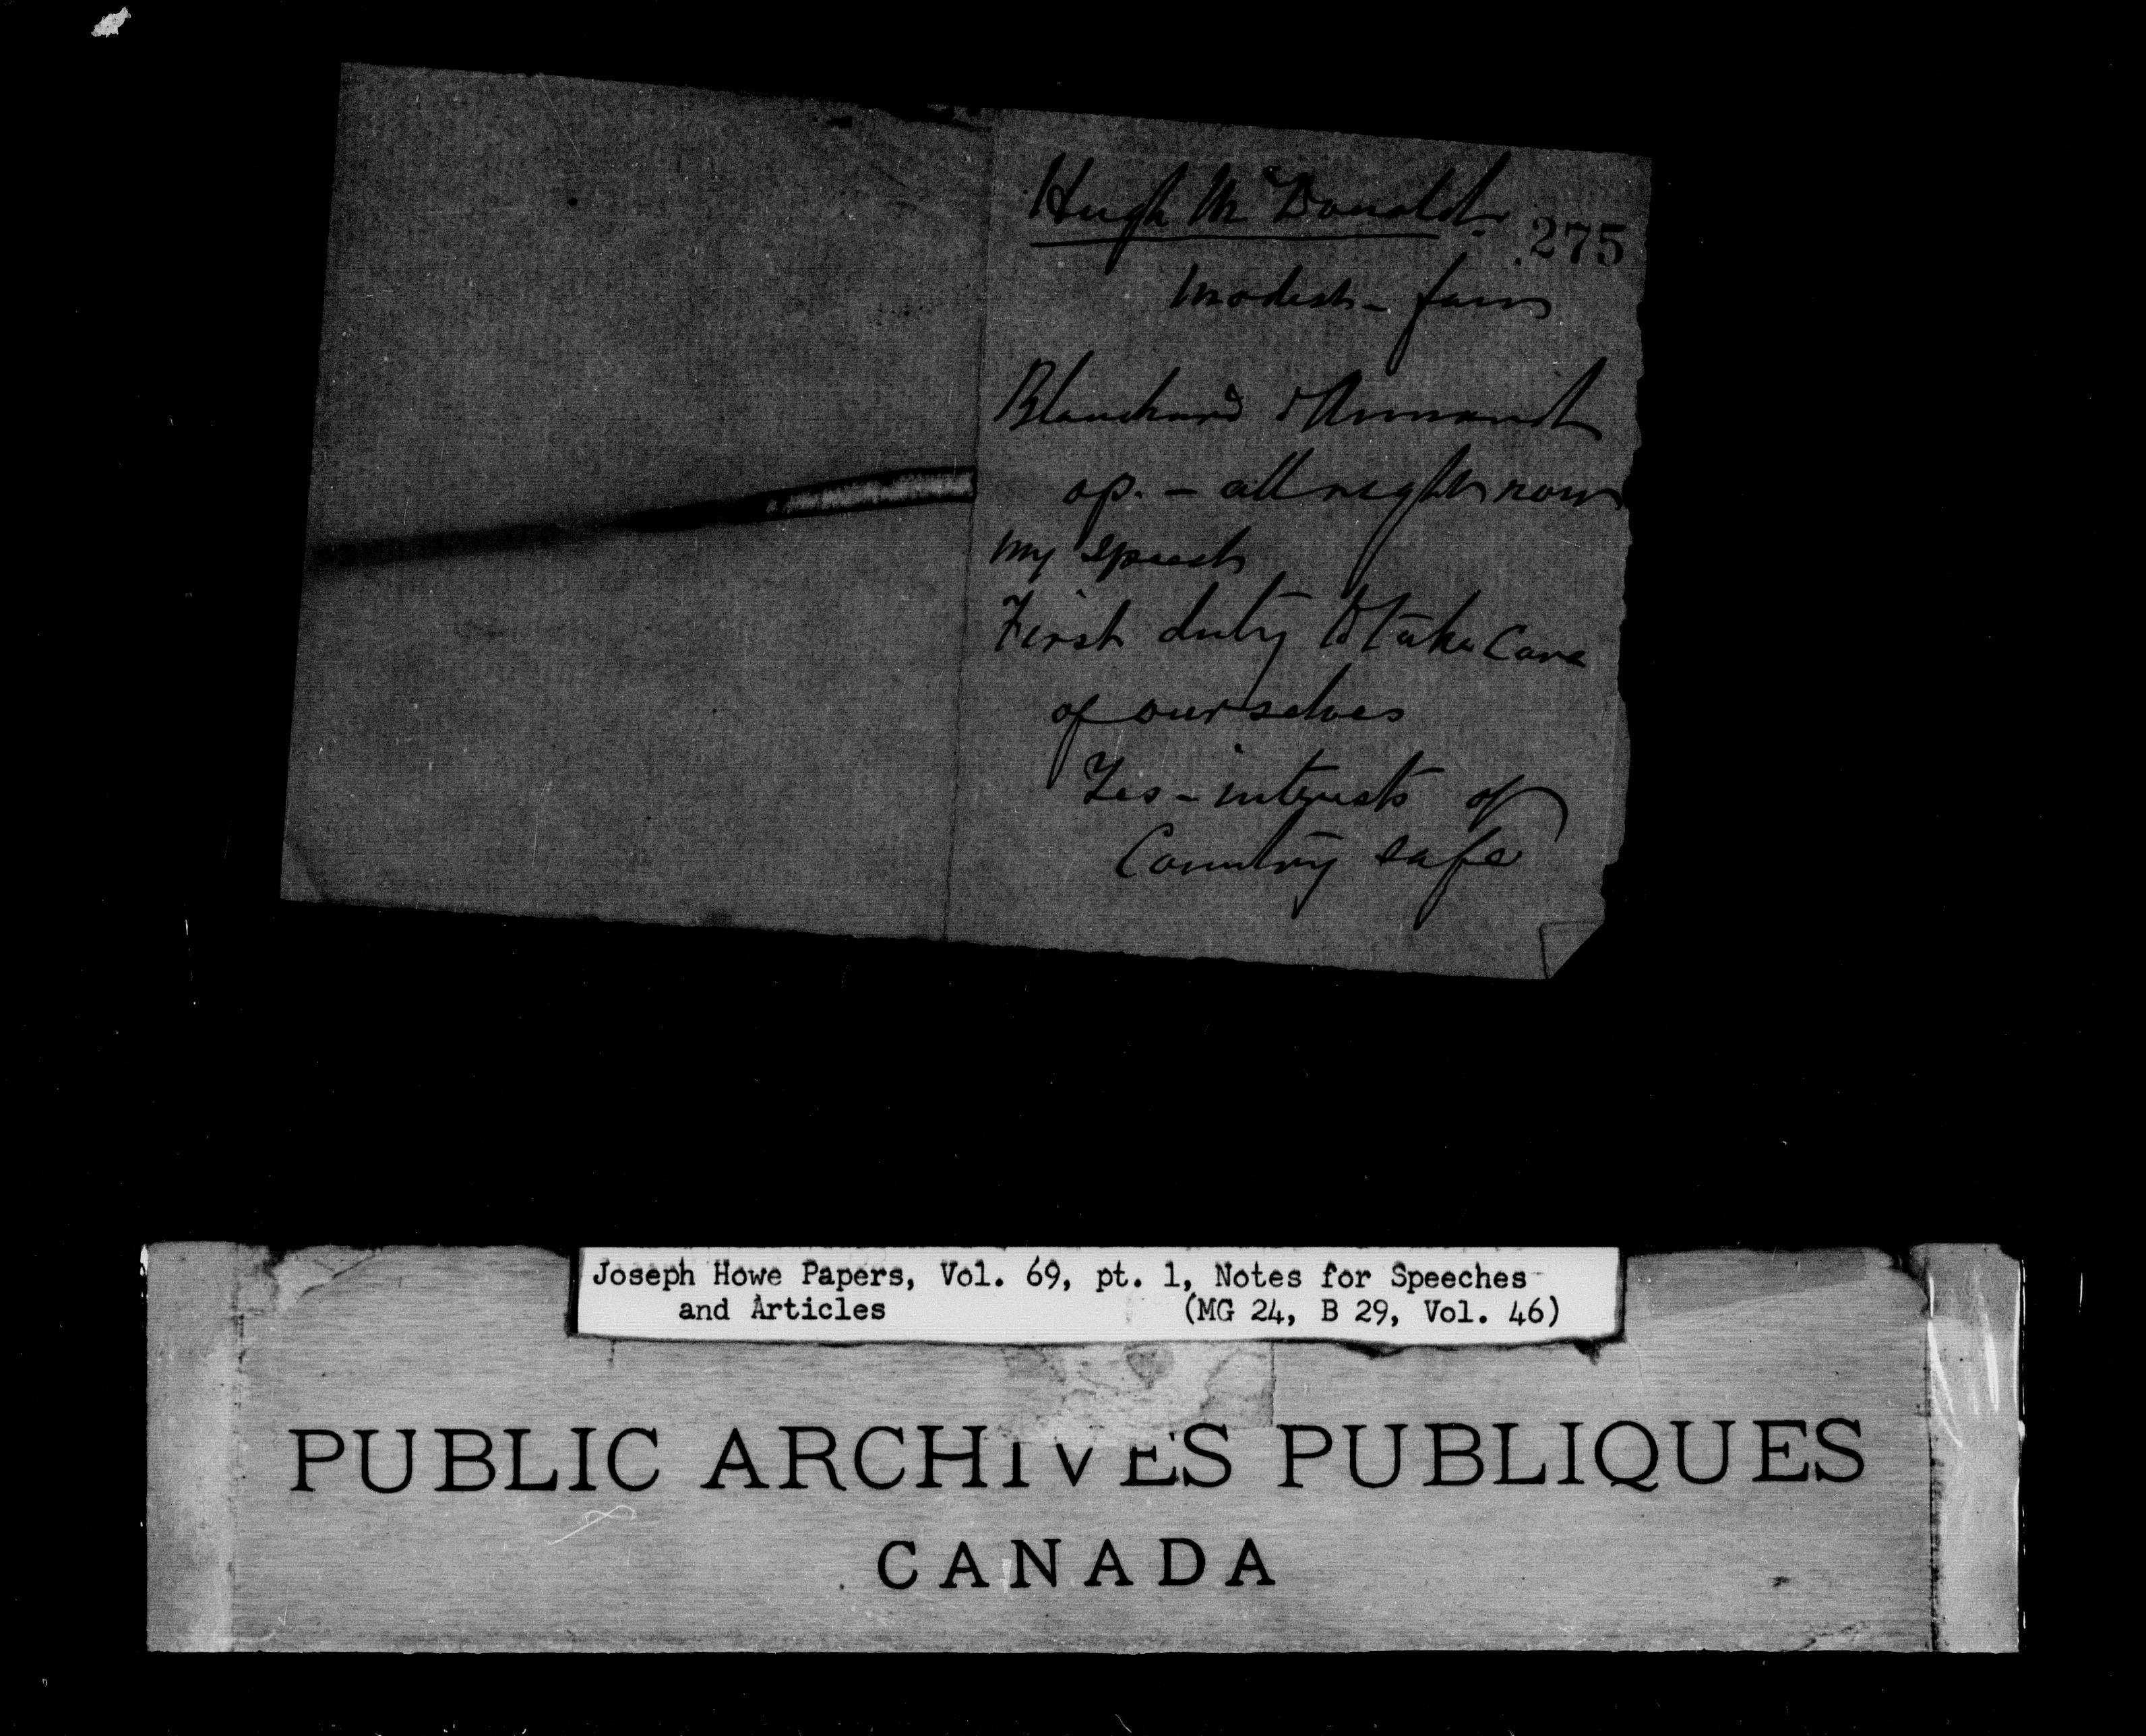 Hugh McDonald.
275
Modest - fair
Blanchard & Annand
op. - all right now
my speech
First duty to take care
of ourselves
Yes - interests of
Country safe
Joseph Howe Papers, Vol. 69, pt. 1, Notes for Speeches
and Articles (MG 24, B 29, Vol. 46)
PUBLIC ARCHIVES PUBLIQUES
CANADA